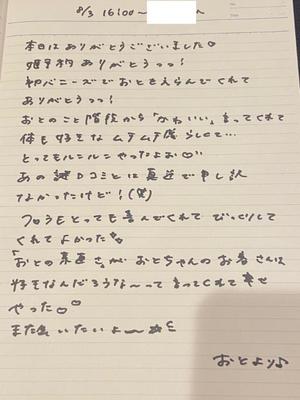 8/3 16:00〜
本日はありがとうございました♡
姫予約ありがとうっっ!
初バニーズでおとをえらんでくれて
ありがとうっっ!
おとのこと階段から「かわいい」まってくれて
体も好きなムチムチ感らしくて…
とってもルンルンやったよぉ♡
あの謎口コミとは真逆で申し訳
なかったけど!(笑)
フロうもとっても喜んでくれてびっくりして
くれてよかった
「おとの素直さ」が おとちゃんのお客さんは
好きなんだろうな〜ってまってくれて幸せ
やった♡♡
また会いたいよ〜
おとより♪